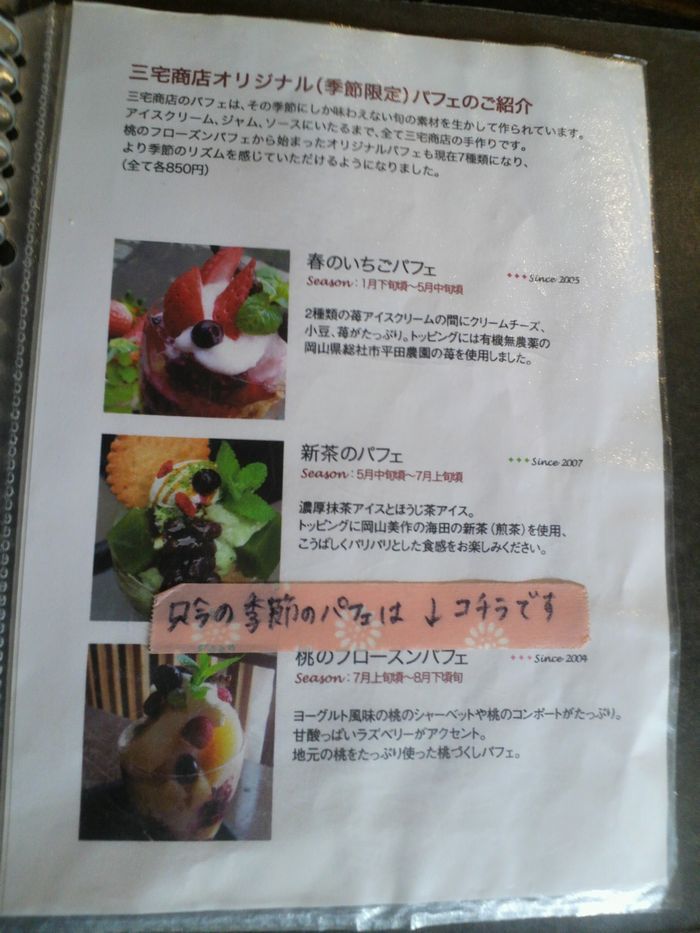 三宅商店オリジナル(季節限定)パフェのご紹介
三宅商店のパフェは、その季節にしか味わえない旬の素材を生かして作られています。
アイスクリーム、ジャム、ソースにいたるまで、全て三宅商店の手作りです。
桃のフローズンパフェから始まったオリジナルパフェも現在7種類になり、
より季節のリズムを感じていただけるようになりました。
(全て各850円)
春のいちごパフェ
Since 2005
Season:1月下旬頃〜5月中旬頃
2種類の苺アイスクリームの間にクリームチーズ、
小豆、苺がたっぷり。トッピングには有機無農薬の
岡山県総社市平田農園の苺を使用しました。
新茶のパフェ
Since 2007
Season:5月中旬頃〜7月上旬頃
濃厚抹茶アイスとほうじ茶アイス。
トッピングに岡山美作の海田の新茶(煎茶)を使用、
こうばしくパリパリとした食感をお楽しみください。
只今の季節のパフェは ↓ コチラです
桃のフローズンパフェ
Since 2004
Season:7月上旬頃〜8月下頃旬
ヨーグルト風味の桃のシャーベットや桃のコンポートがたっぷり。
甘酸っぱいラズベリーがアクセント。
地元の桃をたっぷり使った桃づくしパフェ。